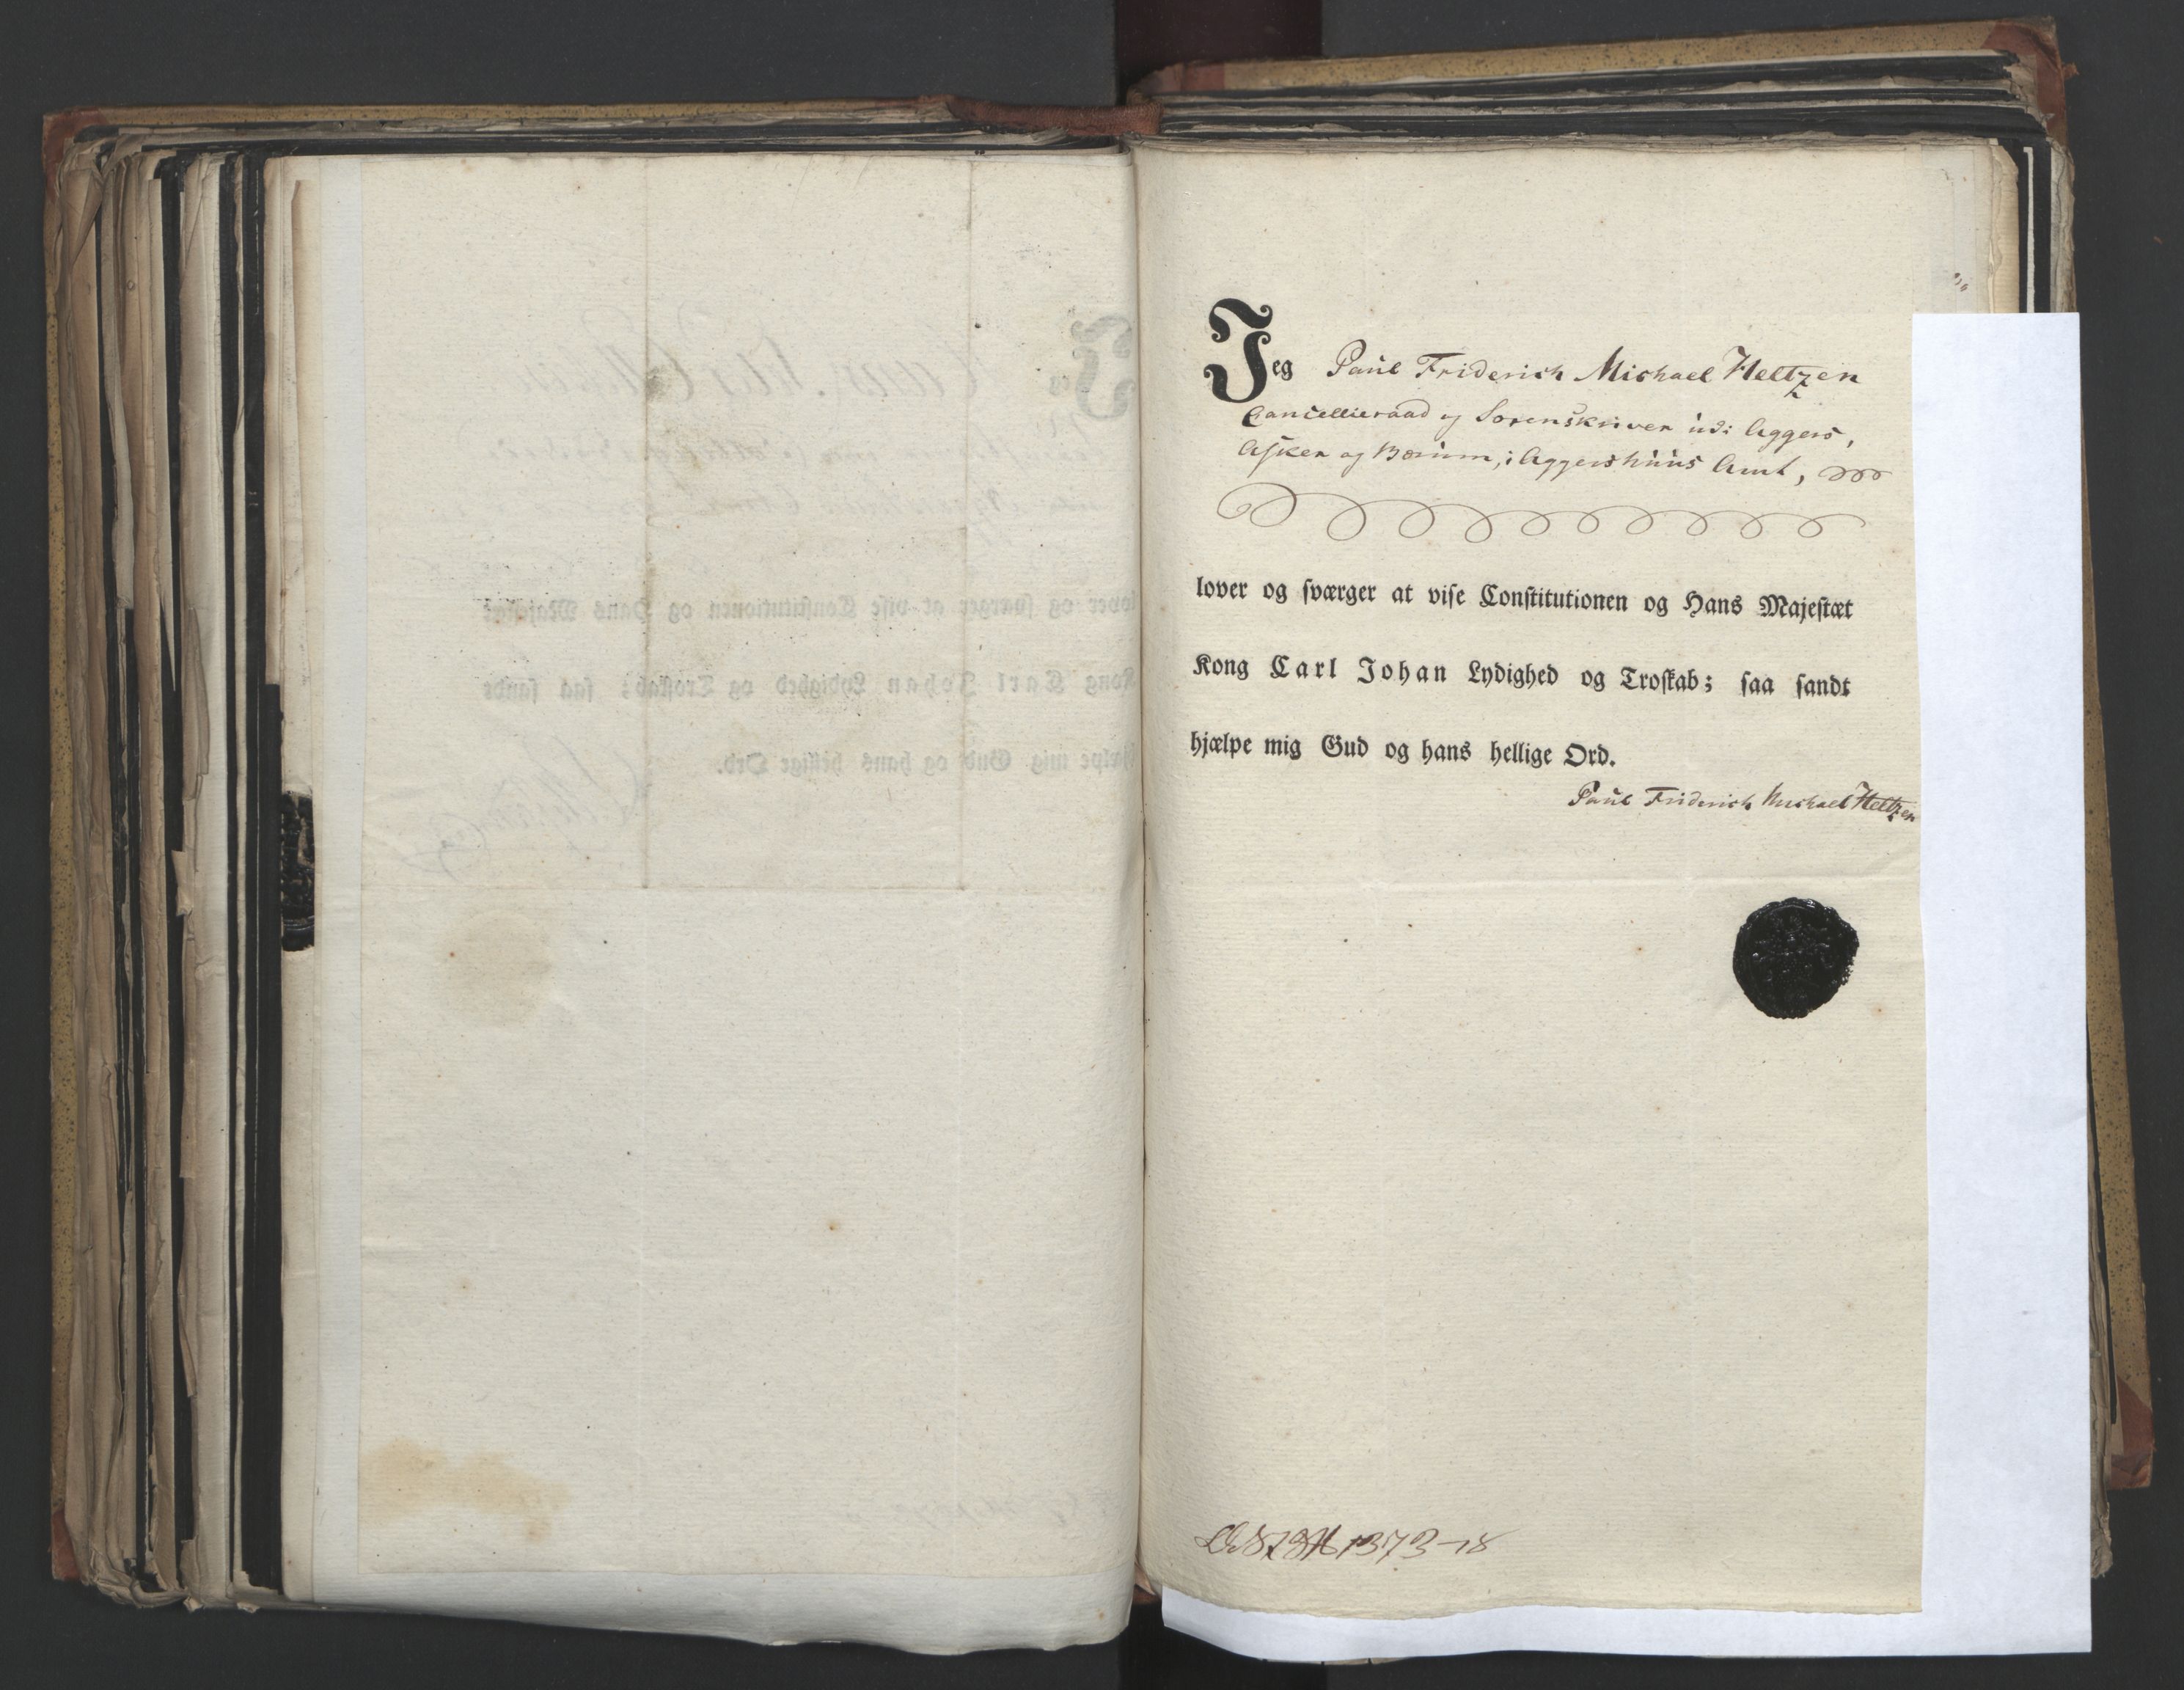 Jeg Paul Friderich Michael Heltzen
Cancelliraad og Sorenskriver udi Aggers,
Asker og Bærum, i Aggershuus Amt,
lover og sværger at vise Constitutionen og Hans Majestæt
Kong Carl Johan Lydighed og Troskab; saa sandt
hjælpe mig Gud og hans hellige Ord.
Paul Friderich Michael Heltzen
1373-18